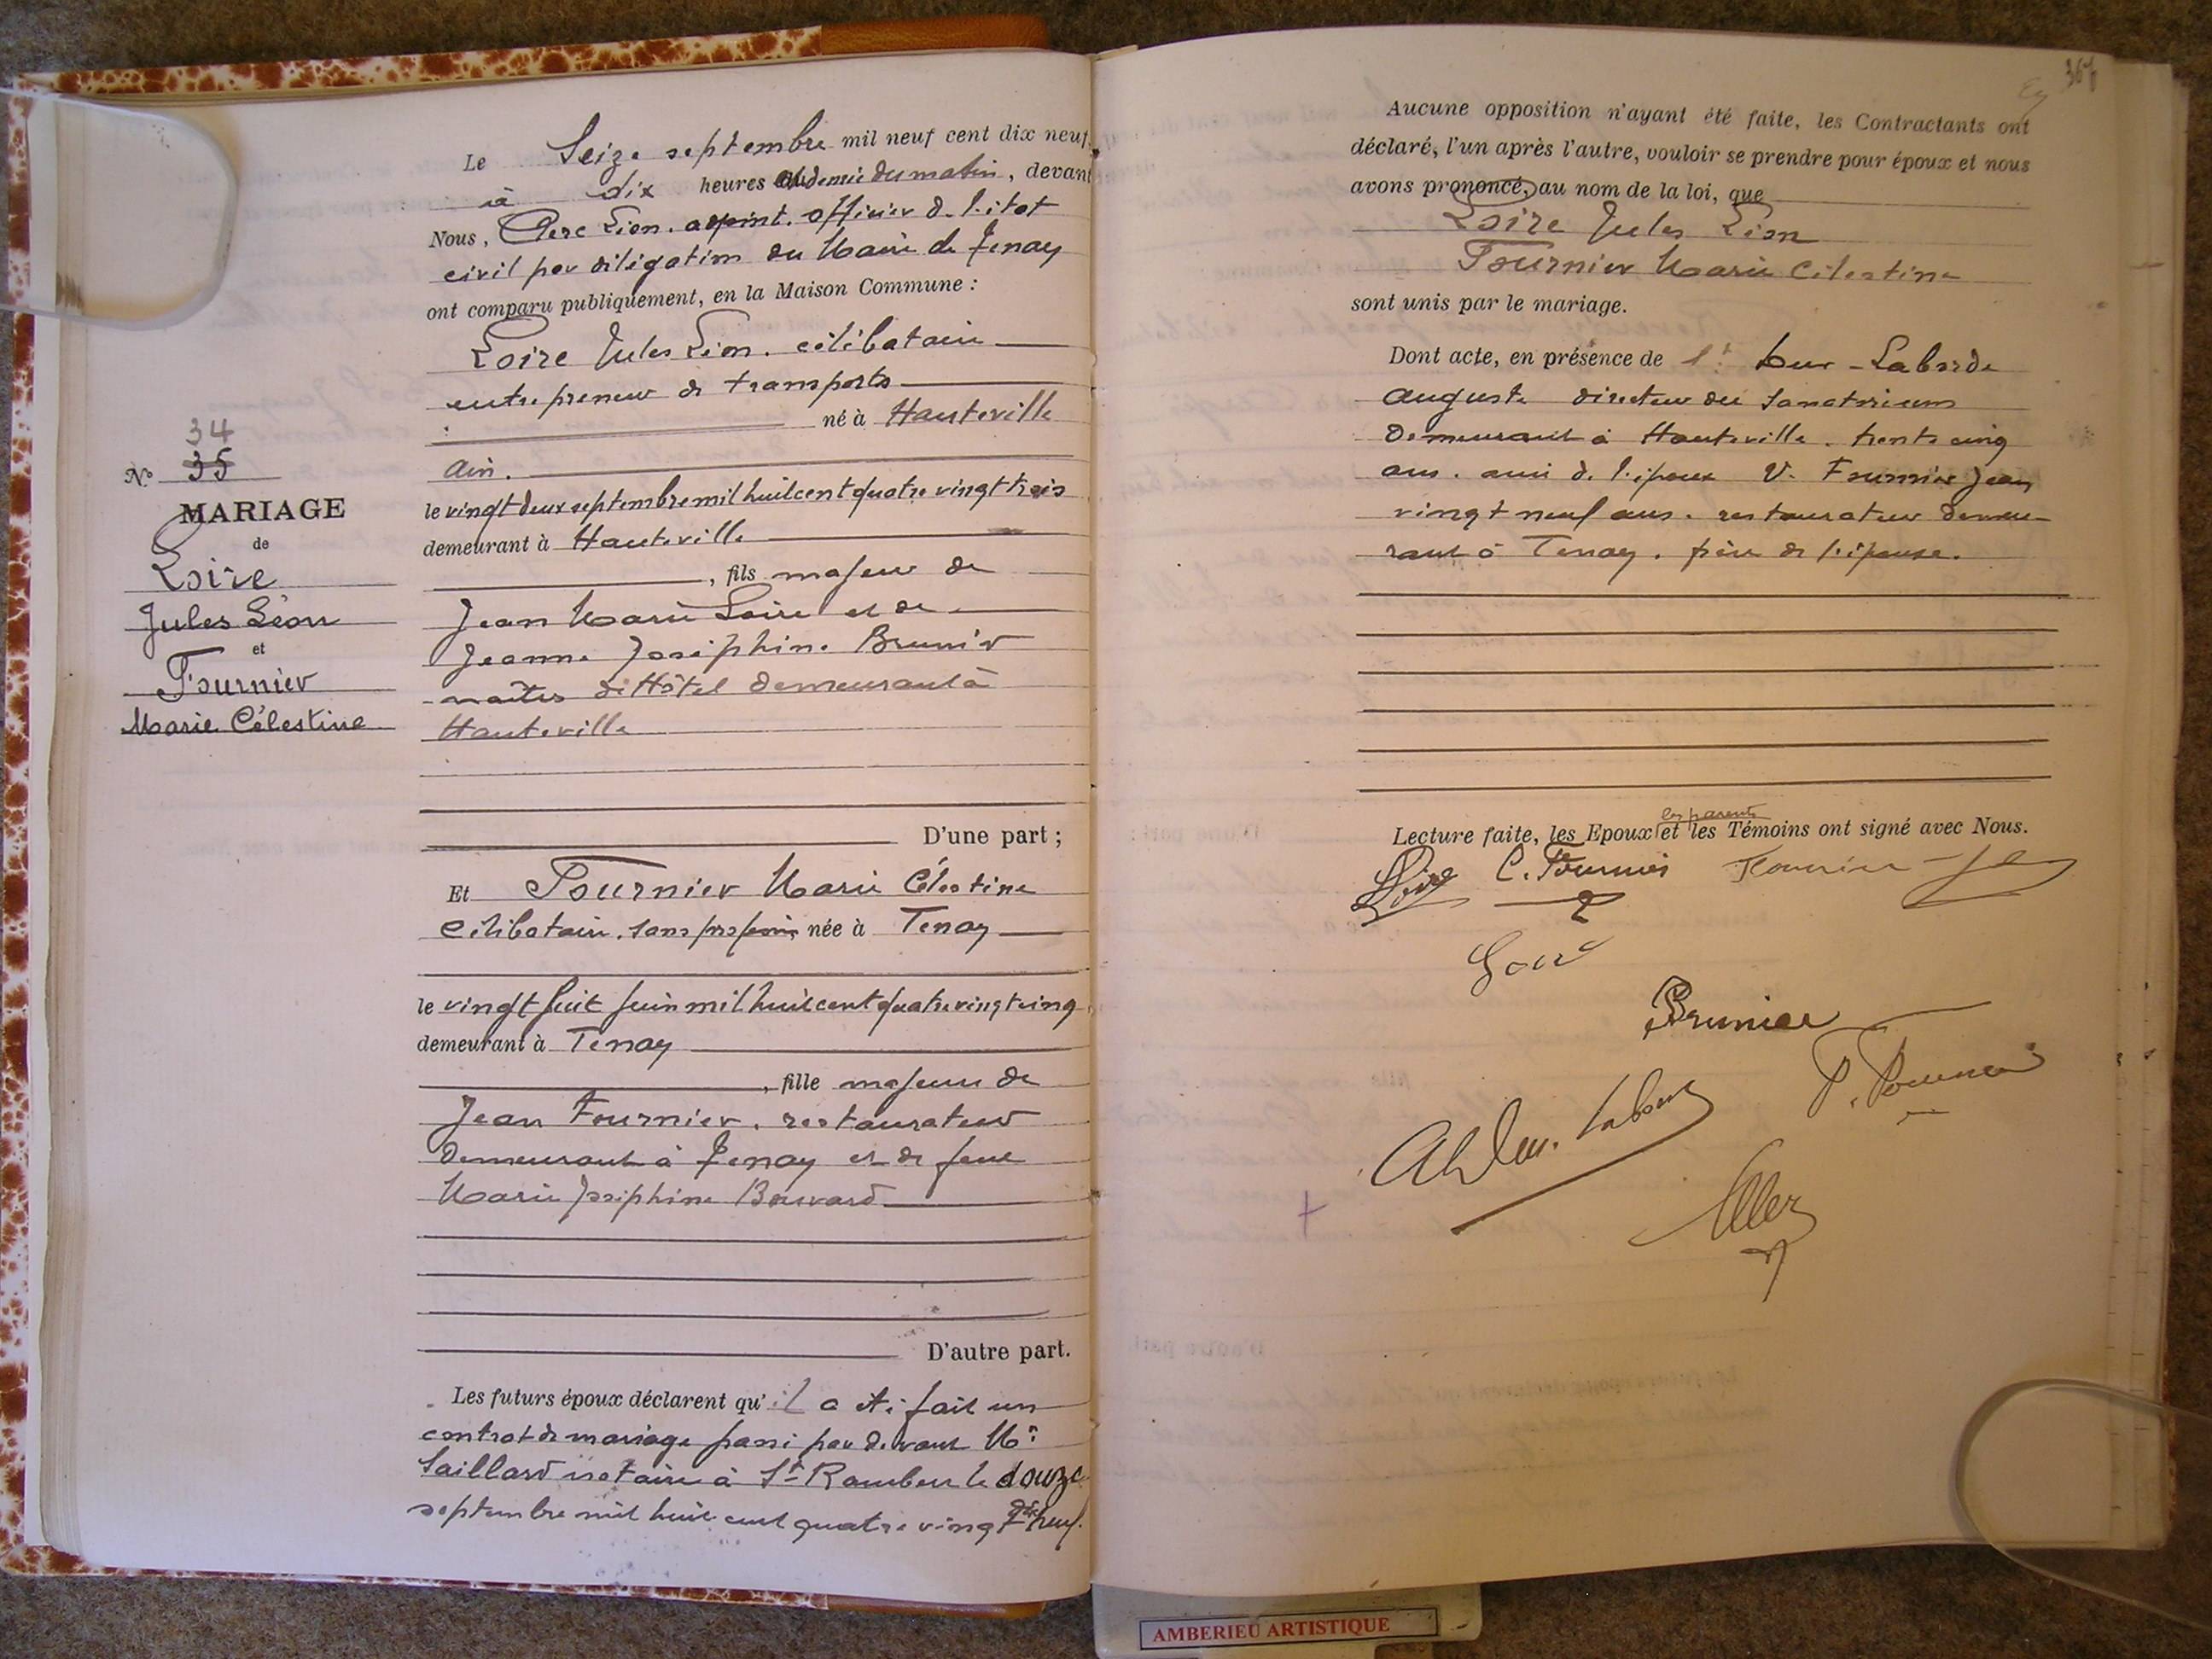 34
N.º 35
MARIAGE
de
Loire
Jules Léon
et
Fournier
Marie Célestine
Le Seize septembre mil neuf cent dix neuf
à dix heures et demie du matin, devant
Nous, Clerc Léon. adjoint. officier de l'état
civil par déligation du Maire de Tenay
ont comparu publiquement, en la Maison Commune :
Loire Jules Léon. célibataire
entrepreneur de transports
né à Hauteville
Ain.
le vingt deux septembre mil huit cent quatre vingt trois
demeurant à Hauteville
, fils majeur de
Jean Marie Loire et de
Jeanne Joséphine Brunier
maîtres d'Hôtel demeurant à
Hauteville
D'une part ;
Et Fournier Marie Célestine
célibataire. sans profession née à Tenay
le vingt huit juin mil huit cent quatre vingt cinq
demeurant à Tenay
, fille majeure de
Jean Fournier. restaurateur
demeurant à Tenay et de feue
Marie Joséphine Bouvard
D'autre part.
Les futurs époux déclarent qu'il a été fait un
contrat de mariage passé par devant Me
Saillard notaire à St Rambert le douze
septembre mil huit cent quatre vingt dix neuf.
Aucune opposition n'ayant été faite, les Contractants ont
déclaré, l'un après l'autre, vouloir se prendre pour époux et nous
avons prononcé, au nom de la loi, que
Loire Jules Léon
Fournier Marie Célestine
sont unis par le mariage.
Dont acte, en présence de 1º Dur-Laborde
Auguste directeur du Sanatorium
demeurant à Hauteville. trente cinq
ans. ami de l'époux Fournier Jean
vingt neuf ans. restaurateur demeu-
rant à Tenay. frère de l'épouse.
les parents
Lecture faite, les Epoux et les Témoins ont signé avec Nous.
Loire C. Fournier Fournier
Loire
Brunier
P. Fournier
Laborde
Clerc
AMBERIEU ARTISTIQUE